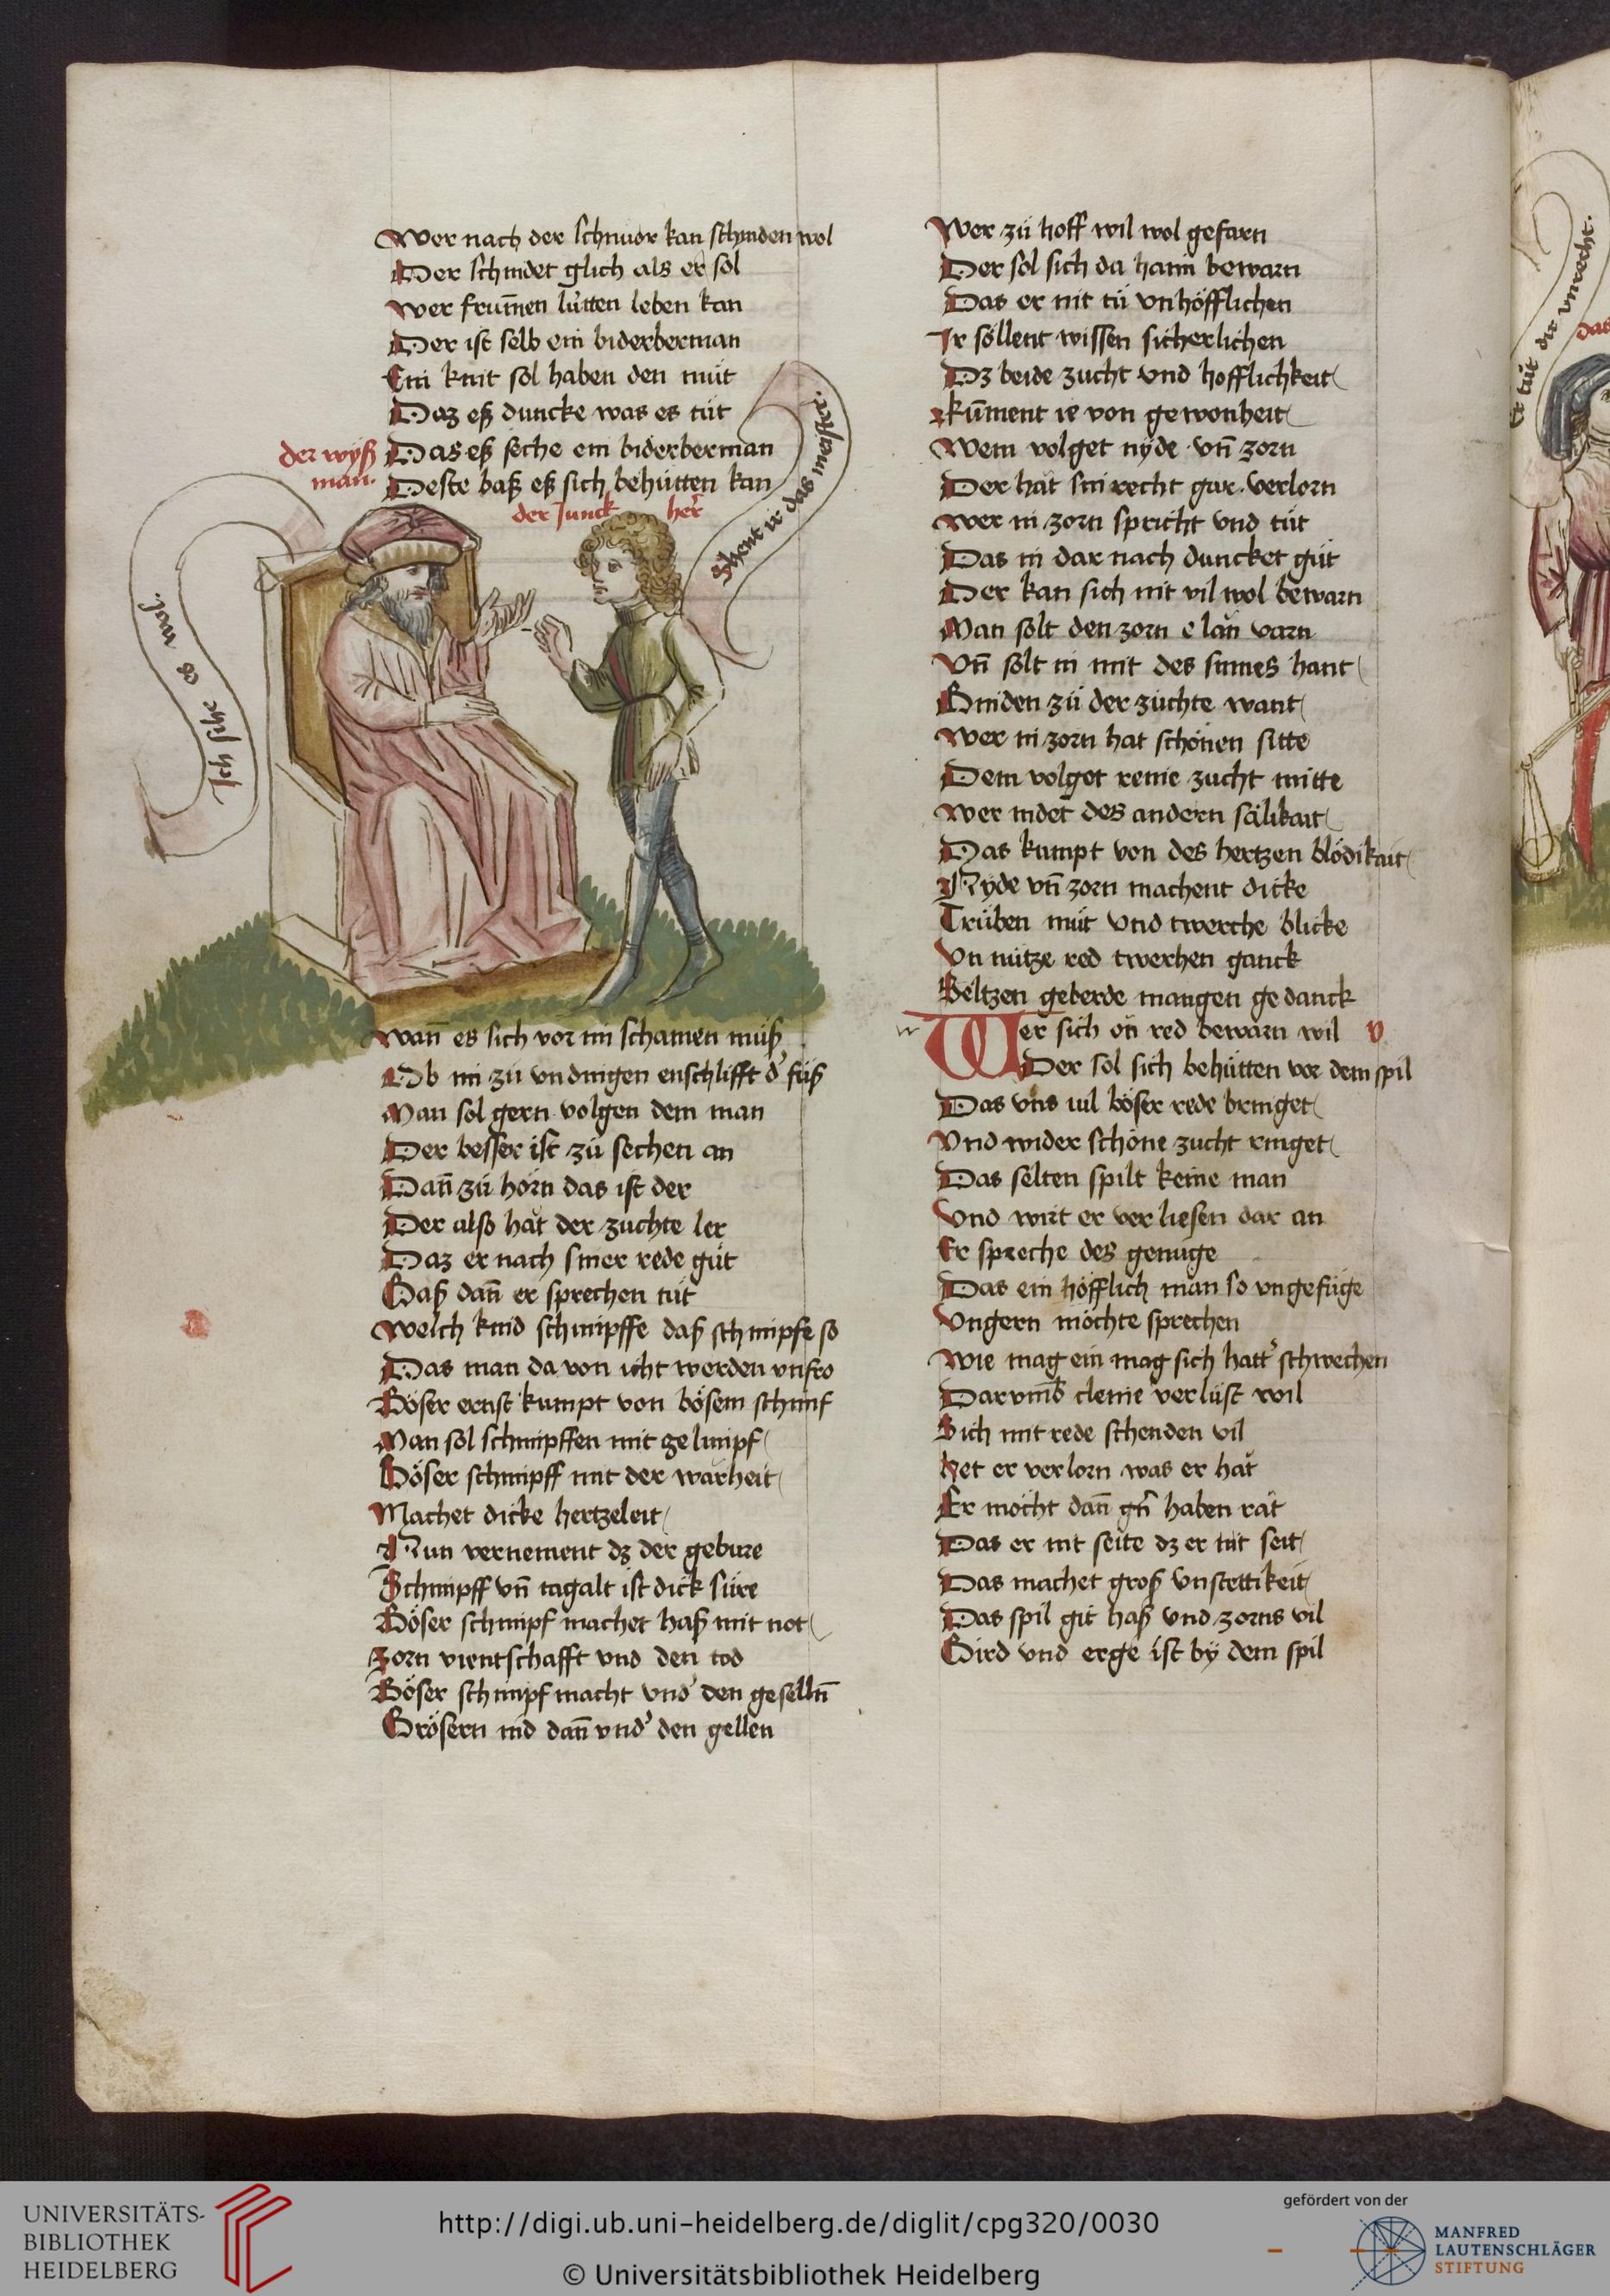 Wer nach der schnuor kan schniden wol
Der schnidet glich als er sol
Wer frum̄en lütten leben kan
Der ist selb ein biderberman
Ein kint sol haben den müt
Daz eß duncke was es tüt
der wyß
man.
Das eß seche ein biderberman
Deste baß eß sich behütten kan
der Junck her̄
Sihent ir das meister.
Ich sihe es wol.
Wan̄ es sich vor im schamen müß
Ob im zü vndingen enschlifft d' füß
Man sol gern volgen dem man
Der besser ist zü sechen an
Dan̄ zü hörn das ist der
Der also hăt der zuchte ler
Daz er nach siner rede güt
Baß dan̄ er sprechen tüt
Welch kind schimpffe daß schimpfe so
Das man da von icht werden vnfro
Böser ernst kumpt von bösem schimf
Man sol schimpffen mit gelimpf
Böser schimpff mit der warheit
Machet dicke hertzeleit
Nun vernement dz der gebure
Schimpff vn̄ tagalt ist dick süre
Böser schimpf machet haß mit not
Zorn vientschafft vnd den tod
Böser schimpf macht vnd' den geselln̄
Grösern nid dan̄ vnd' den gellen
Wer zü hoff wil wol gefarn
Der sol sich da haim bewarn
Das er nit tü vnhöfflichen
Ir söllent wissen sicherlichen
Dz beide zucht vnd hofflichkeit
kum̄ent ie von gewonheit
Wem volget nyde vn̄ zorn
Der hăt sin recht gar verlorn
Wer in zorn spricht vnd tüt
Das in dar nach duncket güt
Der kan sich nit vil wol bewarn
Man solt den zorn e lăn varn
Vn̄ solt in mit des sinnes hant
Binden zü der zuchte want
Wer in zorn hat schönen sitte
Dem volget reine zucht mitte
Wer nidet des andern sälikait
Das kumpt von des hertzen blödikait
Nyde vn̄ zorn machent dicke
Trüben müt vnd twerche blicke
Vn nütze red twerhen ganck
Seltzen geberde mangen gedanck
w
Wer sich ön red bewarn wil v
Der sol sich behütten vor dem spil
Das vns uil böser rede bringet
Vnd wider schöne zucht ringet
Das selten spilt keine man
Vnd wirt er verliesen dar an
Er spreche des genuge
Das ein höfflich man so vngefüge
Vngern möchte sprechen
Wie mag ein mag sich hatt' schwechen
Darvmb cleine verlüst wil
Sich mit rede schenden vil
Het er verlorn was er hăt
Er mocht dan̄ gn̄ haben răt
Das er nit seite dz er nit seit
Das machet groß vnstettikeit
Das spil git haß vnd zorns vil
Gird vnd erge ist by dem spil
Er tüt dir vnrecht.
das
UNIVERSITÄTS-
BIBLIOTHEK
HEIDELBERG
http://digi.ub.uni-heidelberg.de/diglit/cpg320/0030
© Universitätsbibliothek Heidelberg
gefördert von der
MANFRED
LAUTENSCHLÄGER
STIFTUNG